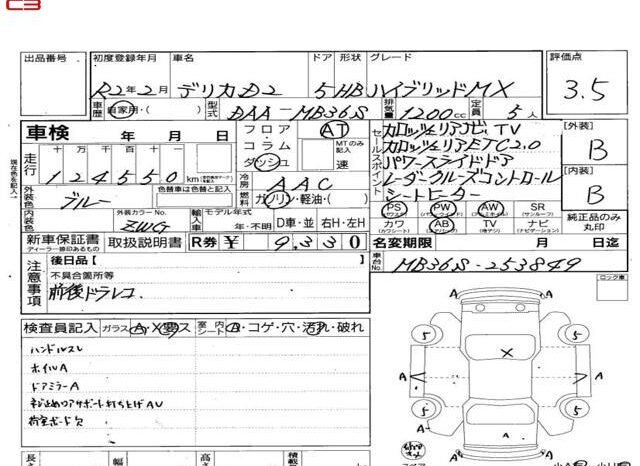 C3
出品番号 初度登録年月 車名 ドア 形状 グレード 評価点
R2年2月 デリカD2 5HB ハイブリッドMX 3.5
車歴 自家用・( ) 型式 DAA-MB36S 排気量 1200cc 定員 5人
車検 年 月 日 フロア・コラム・ダッシュ AT MTのみ記入 速
セールスポイント
カロッツェリアナビ、TV
カロッツェリアETC2.0
パワースライドドア
レーダークルーズコントロール
シートヒーター
[外装] B
[内装] B
現在色を記入
走行 十万 万 千 百 十 一
124550 km
冷房 AAC
外装色 ブルー 色替車は色替と記入 燃料 ガソリン・軽油・( )
内装色 外装カラーNo. ZWG 輸入車 モデル年式 年・不明 D車・並 右H・左H
PS PW AW SR (サンルーフ)
カワ (カワシート) AB (エアバッグ) TV (テレビ) ナビ (ナビゲーション)
純正品のみ丸印
新車保証書 ディーラー捺印あるもの 取扱説明書 R券 ¥ 9,330 名変期限 月 日迄
車台No. MB36S-253849
注意事項
後日品( )
不具合箇所等
前後ドラレコ
ロック車
検査員記入 ガラス A・X・要ス 室内シート A・コゲ・穴・汚れ・破れ
ハンドルスレ
ホイルA
ドアミラーA
ネジ止めリアサポート打ち上げAU
荷室ボード欠
5 5
X
A A A A
5 5
長さ 幅 高さ 積載